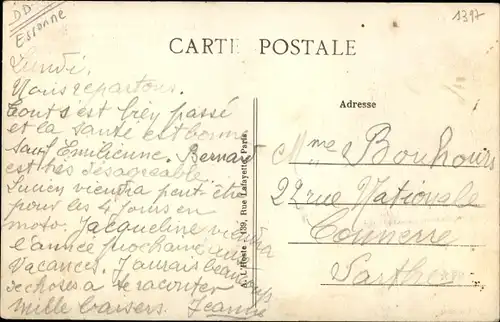 DD
Essonne
1397
CARTE POSTALE
Lundi.
Nous repartons.
Tout s'est bien passé
et la santé est bonne
sauf Emilienne. Bernard
est très désagréable.
Lucien viendra peut-être
pour les 4 jours en
moto. Jacqueline viendra
l'année prochaine aux
vacances. J'aurais beaucoup
de choses à te raconter
mille baisers. Jeanne
A. L'Hoste, 139, Rue Lafayette, Paris
Adresse
Mme Bouhours
22 rue Nationale
Connerré
Sarthe